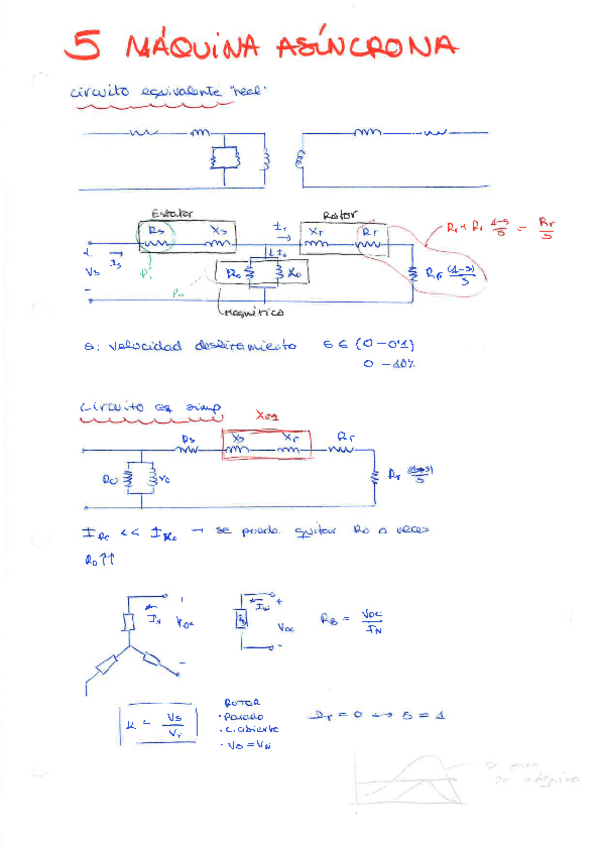 5 MÁQUINA ASÍNCRONA
circuito equivalente "real"
Estator
Rotor
Rs Xs Ir Xr Rr
Rr + Rr 1-s/s = Rr/s
+ Is Io
Vs Ro Xo Rr (1-s)/s
-
Magnético
s: velocidad deslizamiento s ∈ (0-0'1)
0-10%
circuito eq simp
Xeq
Rs Xs Xr Rr
Ro Rr (1-s)/s
IRo << IXo → se puede quitar Ro a veces
Ro↑↑
+ IN VDC -
IN + VDC -
Rs = VDC/IN
K = Vs/Vr
ROTOR
· Parado
· C. abierto
· Vs = VN
= 0 ↔ s = 1